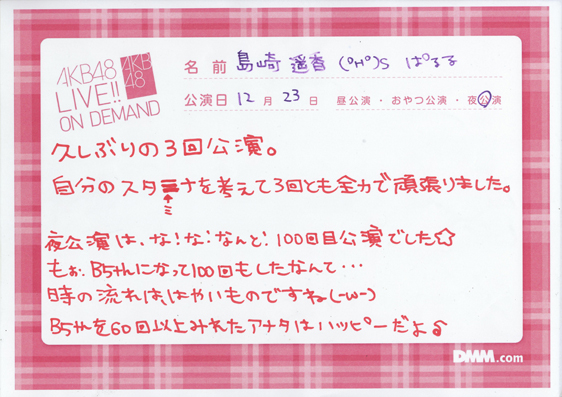 AKB48
LIVE!!
ON DEMAND
AKB
48
名前 島崎 遥香 (°H°)S ぱるる
公演日 12月 23日 昼公演・おやつ公演・夜公演
久しぶりの3回公演。
自分のスタミナを考えて3回とも全力で頑張りました。
夜公演は、な!な!なんと!100回目公演でした☆
もぉ、B5thになって100回もしたなんて・・・
時の流れは、はやいものですね(-ω-)
B5thを60回以上みれたアナタはハッピーだよ♪
DMM.com